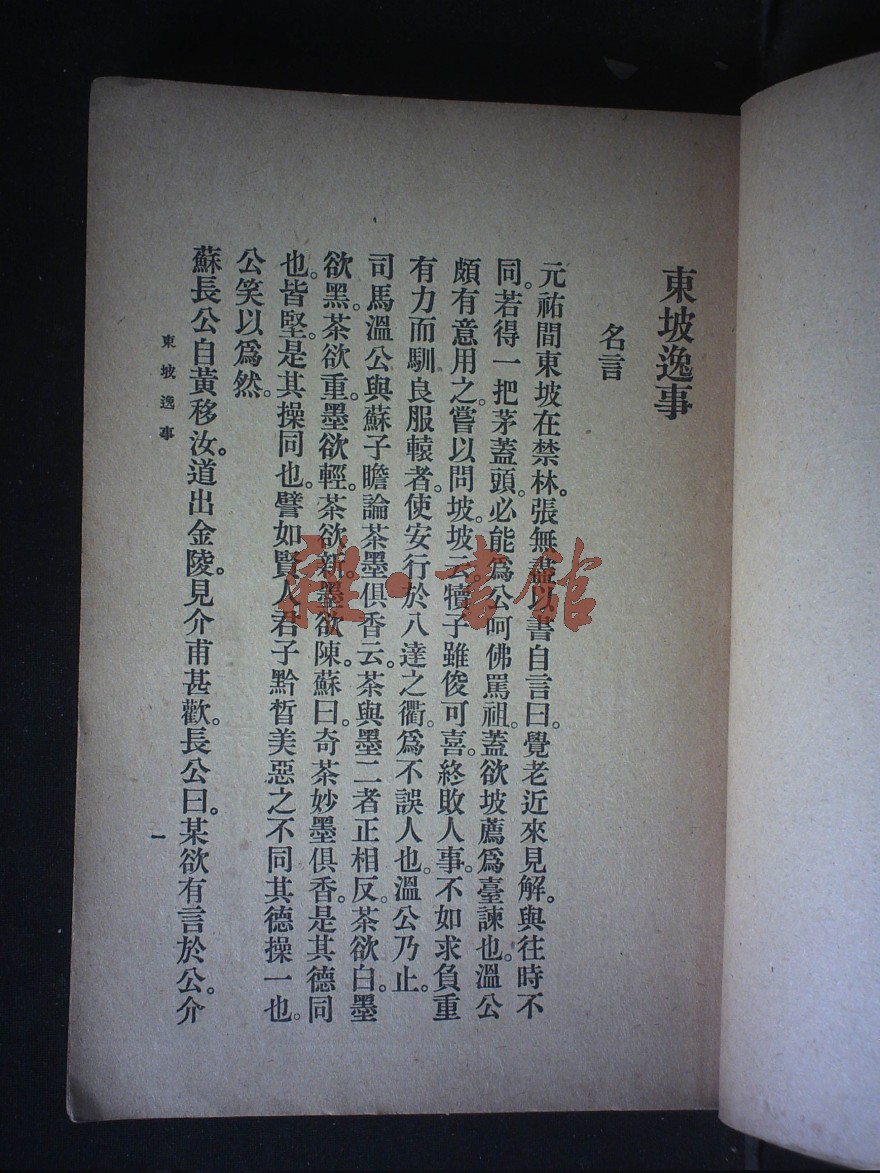 東坡逸事
名言
元祐間東坡在禁林。張無盡以書自言曰。覺老近來見解。與往時不
同。若得一把茅蓋頭。必能爲公呵佛罵祖。蓋欲坡薦爲臺諫也。溫公
頗有意用之。嘗以問坡。坡云。犢子雖俊可喜。終敗人事。不如求負重
有力而馴良服轅者。使安行於八達之衢。爲不誤人也。溫公乃止。
司馬溫公與蘇子瞻論茶墨俱香云。茶與墨二者正相反。茶欲白。墨
欲黑。茶欲重。墨欲輕。茶欲新。墨欲陳。蘇曰。奇茶妙墨俱香。是其德同
也。皆堅。是其操同也。譬如賢人君子黔皙美惡之不同其德操一也。
公笑以爲然。
蘇長公自黃移汝。道出金陵。見介甫甚歡。長公曰。某欲有言於公。介
東坡逸事
一
雜·書館